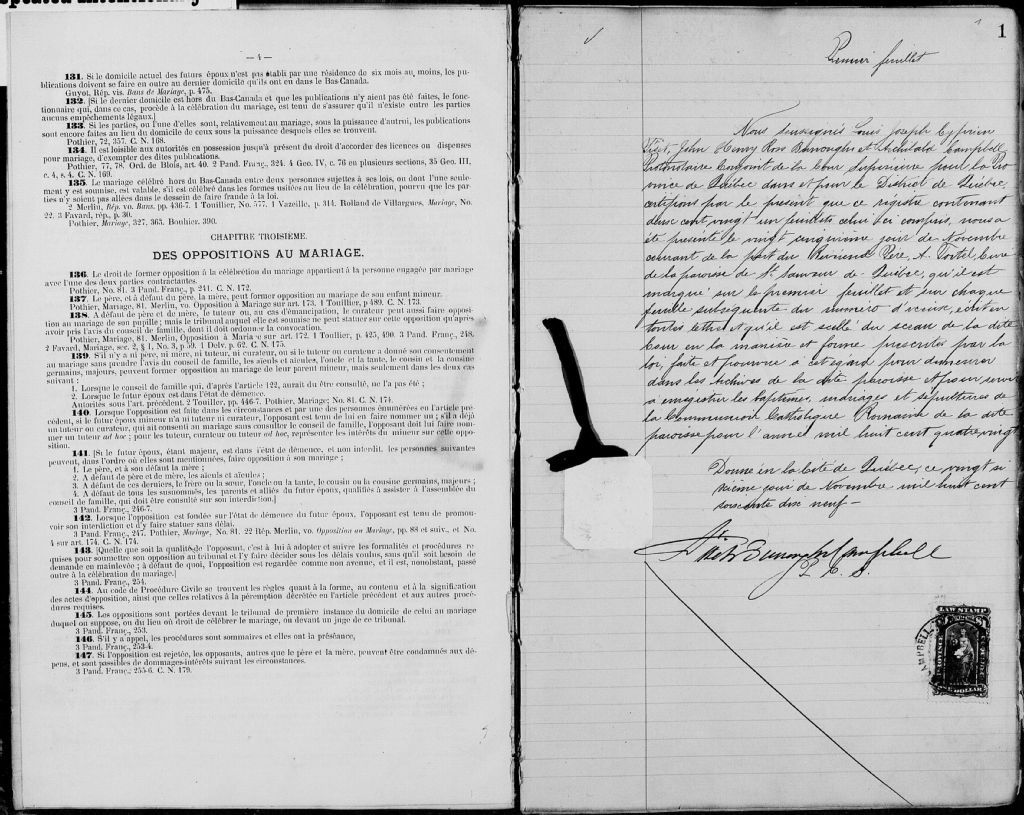 — 4 —
131. Si le domicile actuel des futurs époux n'est pas établi par une résidence de six mois au moins, les pu-
blications doivent se faire en outre au dernier domicile qu'ils ont eu dans le Bas-Canada.
Guyot, Rép. vis. Bans de Mariage, p. 475.
132. [Si le dernier domicile est hors du Bas-Canada et que les publications n'y aient pas été faites, le fonc-
tionnaire qui, dans ce cas, procède à la célébration du mariage, est tenu de s'assurer qu'il n'existe entre les parties
aucuns empêchements légaux.]
133. Si les parties, ou l'une d'elles sont, relativement au mariage, sous la puissance d'autrui, les publications
sont encore faites au lieu du domicile de ceux sous la puissance desquels elles se trouvent.
Pothier, 72, 357. C. N. 168.
134. Il est loisible aux autorités en possession jusqu'à présent du droit d'accorder des licences ou dispenses
pour mariage, d'exempter des dites publications.
Pothier, 77, 78. Ord. de Blois, art. 40. 2 Pand. Franç., 324. 4 Geo. IV, c. 76 en plusieurs sections, 35 Geo. III,
c. 4, s. 4. C. N. 169.
135. Le mariage célébré hors du Bas-Canada entre deux personnes sujettes à ses lois, ou dont l'une seule-
ment y est soumise, est valable, s'il est célébré dans les formes usitées au lieu de la célébration, pourvu que les par-
ties n'y soient pas allées dans le dessein de faire fraude à la loi.
2 Merlin, Rép. vo. Bans, pp. 436-7. 1 Touillier, No. 577. 1 Vazeille, p. 314. Rolland de Villargues, Mariage, No.
22. 3 Favard, rép., p. 30.
Pothier, Mariage, 327, 363. Bouhier, 390.
CHAPITRE TROISIÈME.
DES OPPOSITIONS AU MARIAGE.
136. Le droit de former opposition à la célébration du mariage appartient à la personne engagée par mariage
avec l'une des deux parties contractantes.
Pothier, No. 81. 3 Pand. Franç., p. 241. C. N. 172.
137. Le père, et à défaut du père, la mère, peut former opposition au mariage de son enfant mineur.
Pothier, Mariage, 81. Merlin, vo. Opposition à Mariage sur art. 173. 1 Touillier, p 489. C. N. 173.
138. A défaut de père et de mère, le tuteur ou, au cas d'émancipation, le curateur peut aussi faire opposi-
tion au mariage de son pupille; mais le tribunal auquel elle est soumise ne peut statuer sur cette opposition qu'après
avoir pris l'avis du conseil de famille, dont il doit ordonner la convocation.
Pothier, Mariage, 81. Merlin, Opposition à Mariage sur art. 172. 1 Touillier, p. 425, 490. 3 Pand. Franç., 248.
2 Favard, Mariage, sec. 2, § 1, No. 3, p. 59. 1 Delv. p. 62. C. N. 175.
139. S'il n'y a ni père, ni mère, ni tuteur, ni curateur, ou si le tuteur ou curateur a donné son consentement
au mariage sans prendre l'avis du conseil de famille, les aïeuls et aïeules, l'oncle et la tante, le cousin et la cousine
germains, majeurs, peuvent former opposition au mariage de leur parent mineur, mais seulement dans les deux cas
suivant :
1. Lorsque le conseil de famille qui, d'après l'article 122, aurait du être consulté, ne l'a pas été ;
2. Lorsque le futur époux est dans l'état de démence.
Autorités sous l'art. précédent. 2 Touiller, pp. 446-7. Pothier, Mariage; No. 81. C. N. 174.
140. Lorsque l'opposition est faite dans les circonstances et par une des personnes énumérées en l'article pré-
cédent, si le futur époux mineur n'a ni tuteur ni curateur, l'opposant est tenu de lui en faire nommer un ; s'il a déjà
un tuteur ou curateur, qui ait consenti au mariage sans consulter le conseil de famille, l'opposant doit lui faire nom-
mer un tuteur ad hoc ; pour les tuteur, curateur ou tuteur ad hoc, représenter les intérêts du mineur sur cette oppo-
sition.
141. [Si le futur époux, étant majeur, est dans l'état de démence, et non interdit, les personnes suivantes
peuvent, dans l'ordre où elles sont mentionnées, faire opposition à son mariage ;
1. Le père, et à son défaut la mère ;
2. A défaut de père et de mère, les aïeuls et aïeules ;
3. A défaut de ces derniers, le frère ou la sœur, l'oncle ou la tante, le cousin ou la cousine germains, majeurs ;
4. A défaut de tous les susnommés, les parents et alliés du futur époux, qualifiés à assister à l'assemblée du
conseil de famille, qui doit être consulté sur son interdiction.]
3 Pand. Franç., 246-7.
142. Lorsque l'opposition est fondée sur l'état de démence du futur époux, l'opposant est tenu de promou-
voir son interdiction et d'y faire statuer sans délai.
3 Pand. Franç., 247. Pothier, Mariage, No. 81. 22 Rép. Merlin, vo. Opposition au Mariage, pp. 88 et suiv., et No.
4 sur art. 174. C. N. 174.
143. [Quelle que soit la qualité de l'opposant, c'est à lui à adopter et suivre les formalités et procédures re-
quises pour soumettre son opposition au tribunal et l'y faire décider sous les délais voulus, sans qu'il soit besoin de
demande en mainlevée ; à défaut de quoi, l'opposition est regardée comme non avenue, et il est, nonobstant, passé
outre à la célébration du mariage.]
3 Pand. Franç., 254.
144. Au code de Procédure Civile se trouvent les règles quant à la forme, au contenu et à la signification
des actes d'opposition, ainsi que celles relatives à la péremption décrétée en l'article précédent et aux autres procé-
dures requises.
145. Les oppositions sont portées devant le tribunal de première instance du domicile de celui au mariage
duquel on suppose, ou du lieu où droit de célébrer le mariage, ou devant un juge de ce tribunal.
3 Pand. Franç., 253.
146. S'il y a appel, les procédures sont sommaires et elles ont la préséance,
3 Pand. Franç., 253-4.
147. Si l'opposition est rejetée, les opposants, autres que le père et la mère, peuvent être condamnés aux dé-
pens, et sont passibles de dommages-intérêts suivant les circonstances.
3 Pand. Franç., 255-6. C. N. 179.
1
Premier feuillet
Nous soussignés Louis Joseph Cyprien
Fiset, John Henry Ross Burroughs et Archibald Campbell
Protonotaire Conjoint de la Cour Supérieure pour la Pro
vince de Québec dans et pour le District de Québec,
certifions par le présent que ce registre contenant
deux cent vingt un feuillets celui ci compris, nous a
été présenté le vingt cinquième jour de Novembre
courant de la part du Révérend Père A. Tortel, Curé
de la paroisse de St Sauveur de Québec, qu'il est
marqué sur le premier feuillet et sur chaque
feuille subséquente du numéro d'icelui, écrit en
toutes lettres et qu'il est scellé du sceau de la dite
Cour en la manière et forme prescrites par la
loi, faite et pourvue à cet égard pour demeurer
dans les Archives de la dite paroisse et pour servir
à enregistrer les baptêmes, mariages et sépultures de
la Communion Catholique Romaine de la dite
paroisse pour l'année mil huit cent quatre vingt
Donné en la Cité de Québec, ce vingt si
xième jour de Novembre mil huit cent
soixante dix neuf—
Fiset Burroughs Campbell
P. C. S.
LAW STAMP
CAMPBELL
ONE DOLLAR